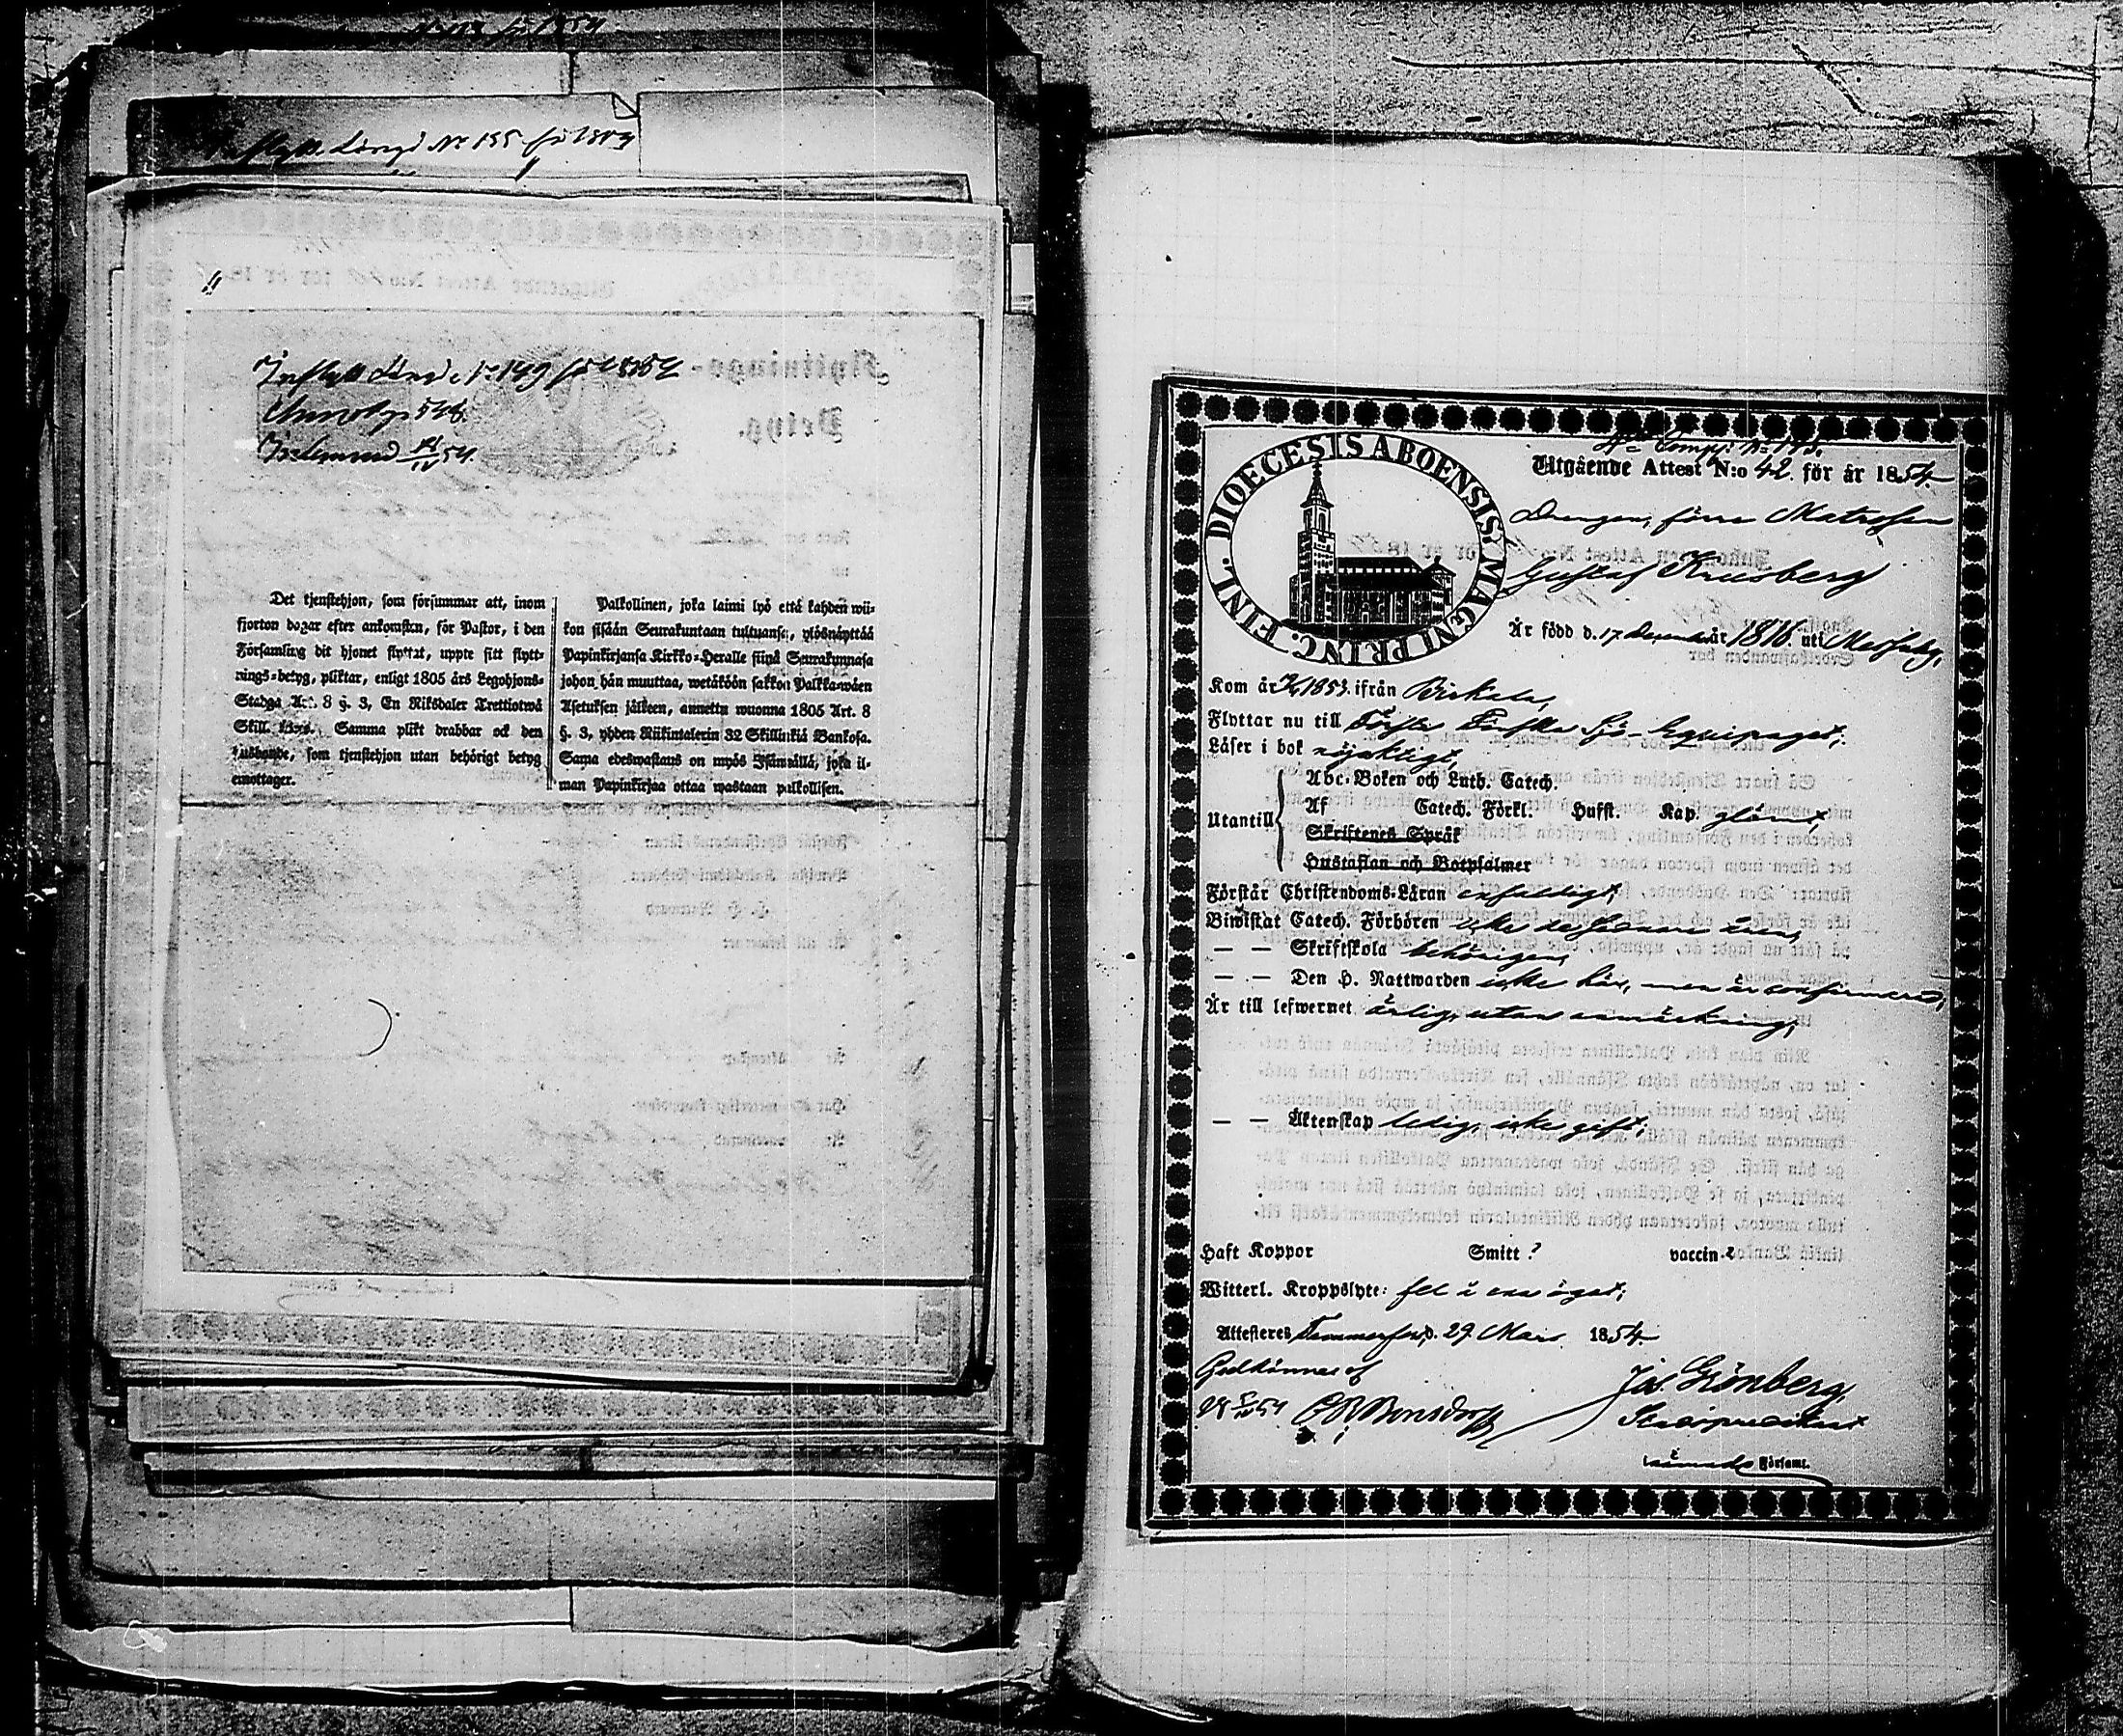 Inflytt. Längd No 155 för 1854
Inflytt Längd No 149 för 1854
546.
Inlemnad 54.
Det tjenstehjon, som försummar att, inom
fjorton dagar efter ankomsten, för Pastor, i den
Församling dit hjonet flyttat, uppte sitt flytt-
nings-betyg, pliktar, enligt 1805 års Legohjons-
Stadga Art. 8 §. 3, En Riksdaler Trettiotwå
Skill. Samma plikt drabbar ock den
husbonde, som tjenstehjon utan behörigt betyg
emottager.
Palkollinen, joka laimi lyö että kahden wii-
kon sisään Seurakuntaan tultuansa, ylösnäyttää
Papinkirjansa Kirkko-Herralle siinä Seurakunnasa
johon hän muuttaa, wetäköön sakkoa Palkka-wäen
Asetuksen jälkeen, annettu wuonna 1805 Art. 8
§. 3, yhden Riikintalerin 32 Skillinkiä Bankosa.
Sama edeswastaus on myös Isännällä, joka il-
man Papinkirjaa ottaa wastaan palkollisen.
DIOECESIS ABOENSIS, MAGNI PRINC. FINL.
Utgående Attest N:o 42. för år 1854
Drengen, förre Matrosen
Gustaf Krusberg
Är född d. 17 December år 1816. uti Messuby,
Kom år 1853. ifrån Birkala,
Flyttar nu till Första Finska Sjö-Equipaget;
Läser i bok nöjaktigt,
Utantill
Abc-Boken och Luth. Catech.
Af Catech. Förkl. Hufst. Kap. glömt,
Skriftenes Språk
Hustaflan och Botpsalmer
Förstår Christendoms-Läran enfaldigt,
Biwistat Catech. Förhören icke de sednare åren,
— — Skriftskola behörigen,
— — Den H. Nattwarden icke här, men är confirmerad,
Är till lefwernet ärlig, utan anmärkning,
— — Äktenskap ledig, icke gift;
Haft Koppor Smitt? vaccin.?
Witterl. Kroppslyte: fel i ena ögat;
Attesteres Tammerfors, d. 29. Mars 1854
Godkännes af
Joh. Grönberg,
54 Bonsdorff
Församl.